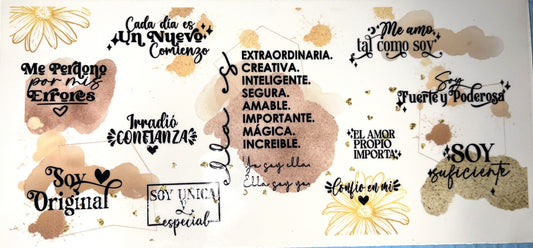 Cada día es
Un Nuevo
Comienzo
Me Perdono
por mis
Errores
Irradió
CONFIANZA
Soy
Original
SOY UNICA
Y
especial
Ella es
EXTRAORDINARIA.
CREATIVA.
INTELIGENTE.
SEGURA.
AMABLE.
IMPORTANTE.
MÁGICA.
INCREIBLE.
Yo soy ella.
Ella soy yo.
Me amo,
tal como soy
Soy
Fuerte y Poderosa
EL AMOR
PROPIO
IMPORTA
Confío en mi
SOY
suficiente